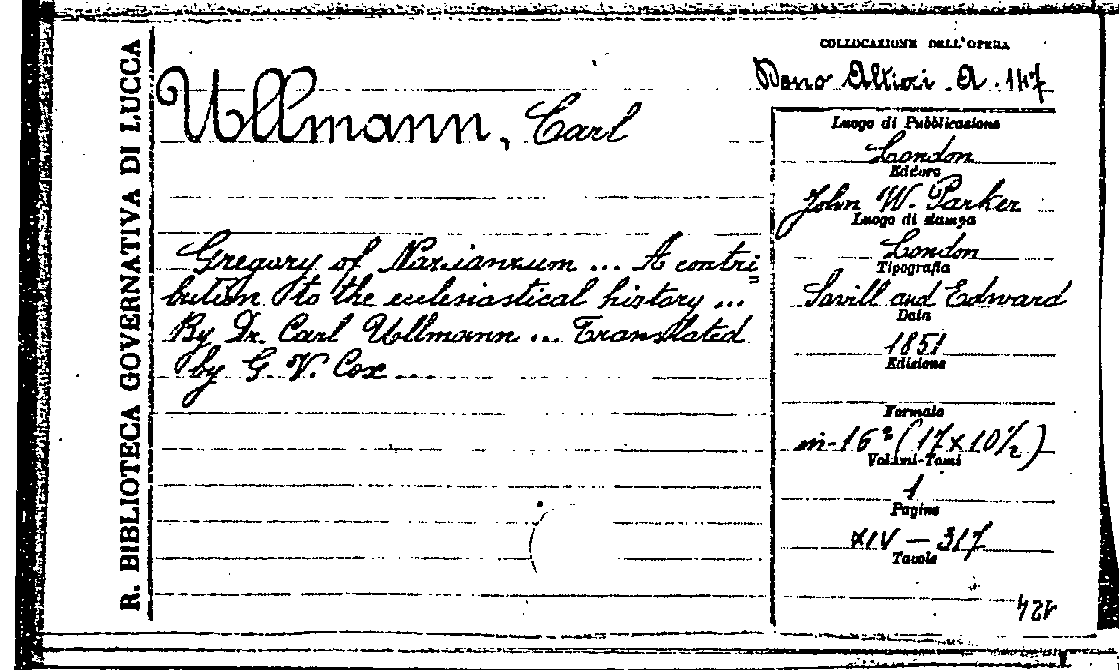 R. BIBLIOTECA GOVERNATIVA DI LUCCA
Ullmann, Carl
Gregory of Nazianzum ... A contri
bution to the ecclesiastical history ...
By Dr. Carl Ullmann ... Translated
by G. V. Cox ...
COLLOCAZIONE DELL'OPERA
Dono Altieri. A. 147
Luogo di Pubblicazione
London
Editore
John W. Parker
Luogo di stampa
London
Tipografia
Savill and Edward
Data
1851
Edizione
Formato
in-16° (17x10½)
Volumi-Tomi
1
Pagine
XIV - 317
Tavole
424